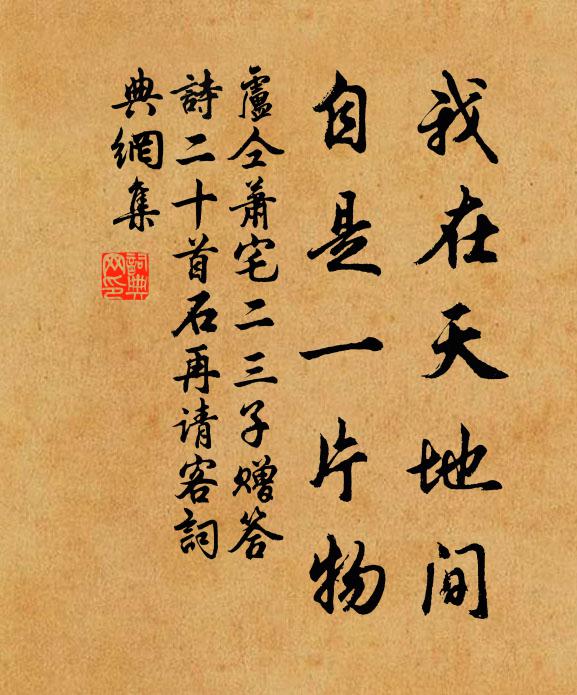 我在天地间
自是一片物
盧仝萧宅二三子赠答
詩二十首石再请客詞
典網集
詞典網印